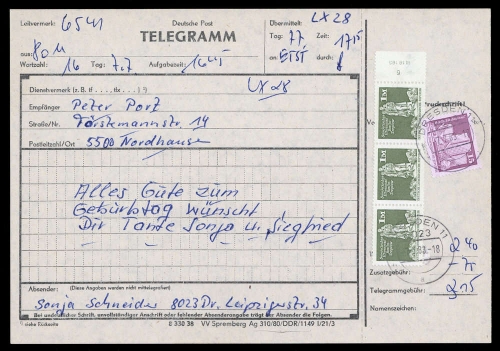 Leitvermerk: 6541 Deutsche Post Übermittelt: LX28
TELEGRAMM
Tag: 77 Zeit: 1715
aus: an: ETST durch:
Wortzahl: 16 Tag: 7.7. Aufgabezeit: 1645
Dienstvermerk (z. B. tf ...., tlx ....) 19 LX28
Empfänger Peter Port
Straße/Nr. Förstemannstr. 14
Postleitzahl/Ort 5500 Nordhausen
Alles Gute zum
Geburtstag wünscht
Dir Tante Sonja u. Siegfried
Absender: (Diese Angaben werden nicht mittelegrafiert)
Sonja Schneider 8023 Dr. Leipzigerstr. 34
Bei undeutlicher Schrift, unvollständiger Anschrift oder fehlender Absenderangabe trägt der Absender die Folgen.
siehe Rückseite 8 330 38 VV Spremberg Ag 310/80/DDR/1149 I/21/3
DRESDEN
1M
1M
1M
15
23
240
Zusatzgebühr:
Telegrammgebühr: 315
Namenszeichen: